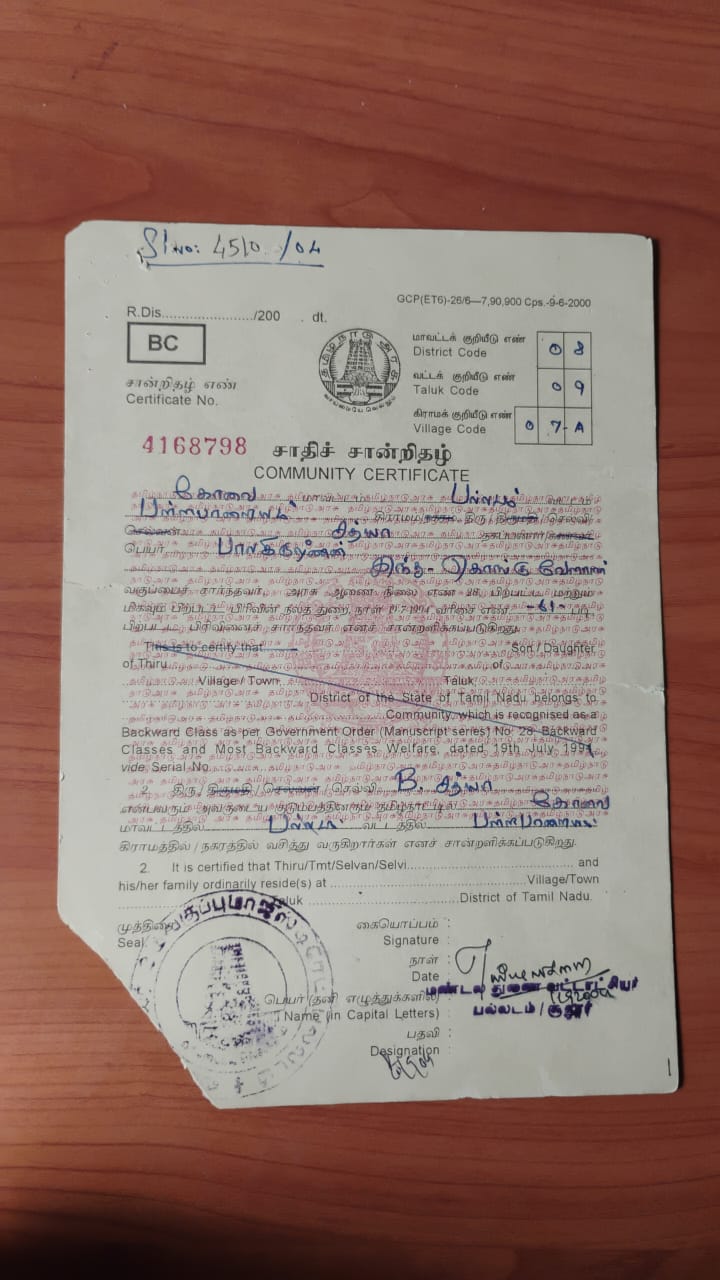 Sl No: 4510 /04
GCP(ET6)-26/6—7,90,900 Cps.-9-6-2000
R.Dis......................./200 . dt.
BC
தமிழ்நாடு அரசு
வாய்மையே வெல்லும்
மாவட்டக் குறியீடு எண்
District Code
0 8
வட்டக் குறியீடு எண்
Taluk Code
0 9
கிராமக் குறியீடு எண்
Village Code
0 7-A
சான்றிதழ் எண்
Certificate No.
4168798
சாதிச் சான்றிதழ்
COMMUNITY CERTIFICATE
கோவை மாவட்டம் பல்லடம் வட்டம்
சத்யா
பெயர் பாலகிருஷ்ணன்
இந்து - கொங்கு வேளாளர்
வகுப்பைச் சார்ந்தவர், அரசு ஆணை நிலை எண் 28, பிற்பட்ட மற்றும்
மிகவும் பிற்பட்ட பிரிவினர் நலத் துறை, நாள் 19.7.1994 வரிசை எண் -61- படி
பிற்பட்ட பிரிவினைச் சார்ந்தவர் எனச் சான்றளிக்கப்படுகிறது.
This is to certify that Son / Daughter
of Thiru of
Village / Town Taluk
District of the State of Tamil Nadu belongs to
Community, which is recognised as a
Backward Class as per Government Order (Manuscript series) No. 28, Backward
Classes and Most Backward Classes Welfare, dated 19th July 1994,
vide Serial No.
2. திரு/திருமதி/செல்வன்/செல்வி B. சத்யா
என்பவரும் அவருடைய குடும்பத்தினரும் தமிழ்நாட்டில் கோவை
மாவட்டத்தில் பல்லடம் வட்டத்தில்
கிராமத்தில் / நகரத்தில் வசித்து வருகிறார்கள் எனச் சான்றளிக்கப்படுகிறது.
2. It is certified that Thiru/Tmt/Selvan/Selvi and
his/her family ordinarily reside(s) at Village/Town
Taluk District of Tamil Nadu.
முத்திரை
Seal.
கையொப்பம் :
Signature :
நாள் :
Date :
பெயர் (தனி எழுத்துக்களில்) :
Name (in Capital Letters) :
மண்டல துணை வட்டாட்சியர்
பல்லடம்
பதவி :
Designation :